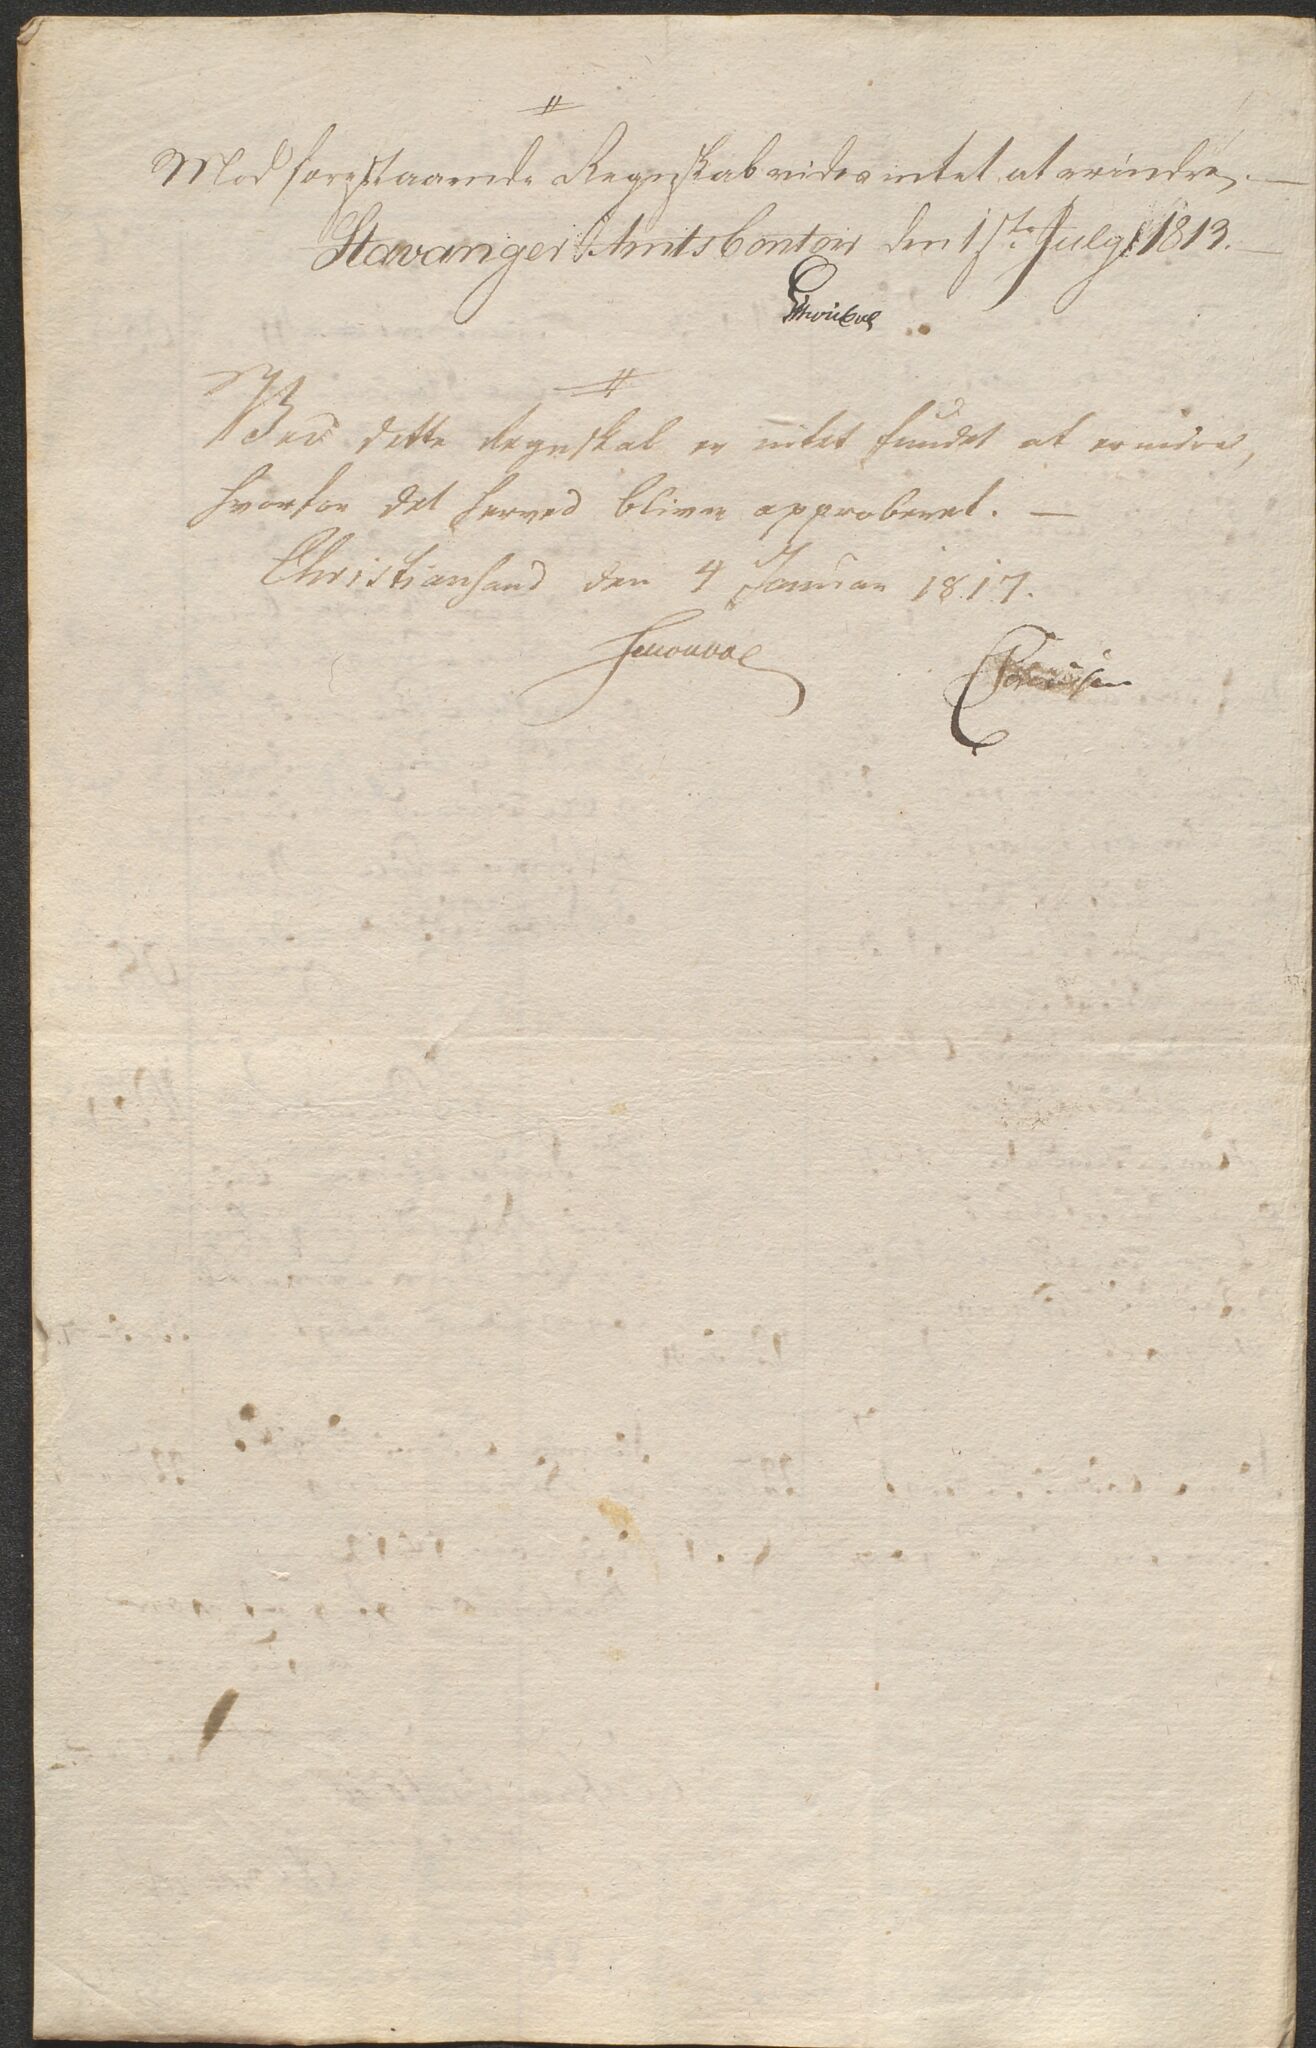 Mod forestaaende Regnskab vides intet at erindre. —
Stavanger Amts Contoir den 1ste July 1813. —
Ved dette Regnskab er intet fundet at erindre,
hvorfor det herved bliver approberet. —
Christiansand den 4 Januar 1817.